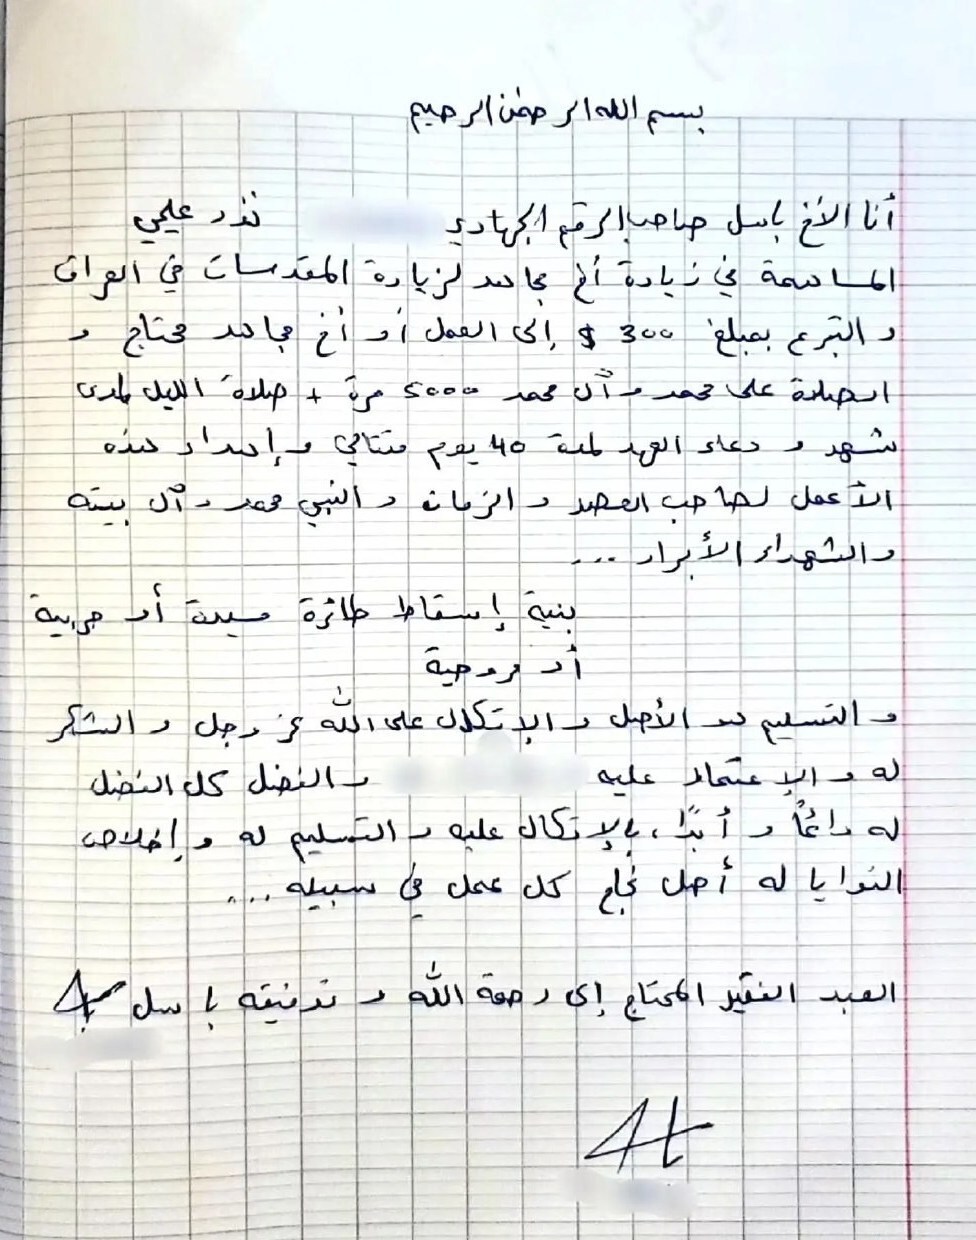 بسم الله الرحمن الرحيم
أنا الأخ باسل صاحب الرقم الجهادي نذر علیي
المساهمة في زيارة أخ مجاهد لزيارة المقدسات في العراق
و التبرع بمبلغ 300 $ إلى العمل أو أخ مجاهد محتاج و
الصلاة على محمد و آل محمد 5000 مرة + صلاة الليل لمدى
شهر و دعاء العهد لمدة 40 يوم متتالي و إهداء هذه
الأعمل لصاحب العصر و الزمان و النبي محمد و آل بيته
و الشهداء الأبرار ...
بنية إسقاط طائرة مسيرة أو حربية
أو مروحية
و التسليم هو الأصل و الإتكال على الله عز وجل و الشكر
له و الإعتماد عليه و الفضل كل الفضل
له دائمًا و أبدًا، بالإتكال عليه و التسليم له و إخلاص
النوايا له أصل نجاح كل عمل في سبيله ...
العبد الفقير المحتاج إلى رحمة الله و توفيقه باسل